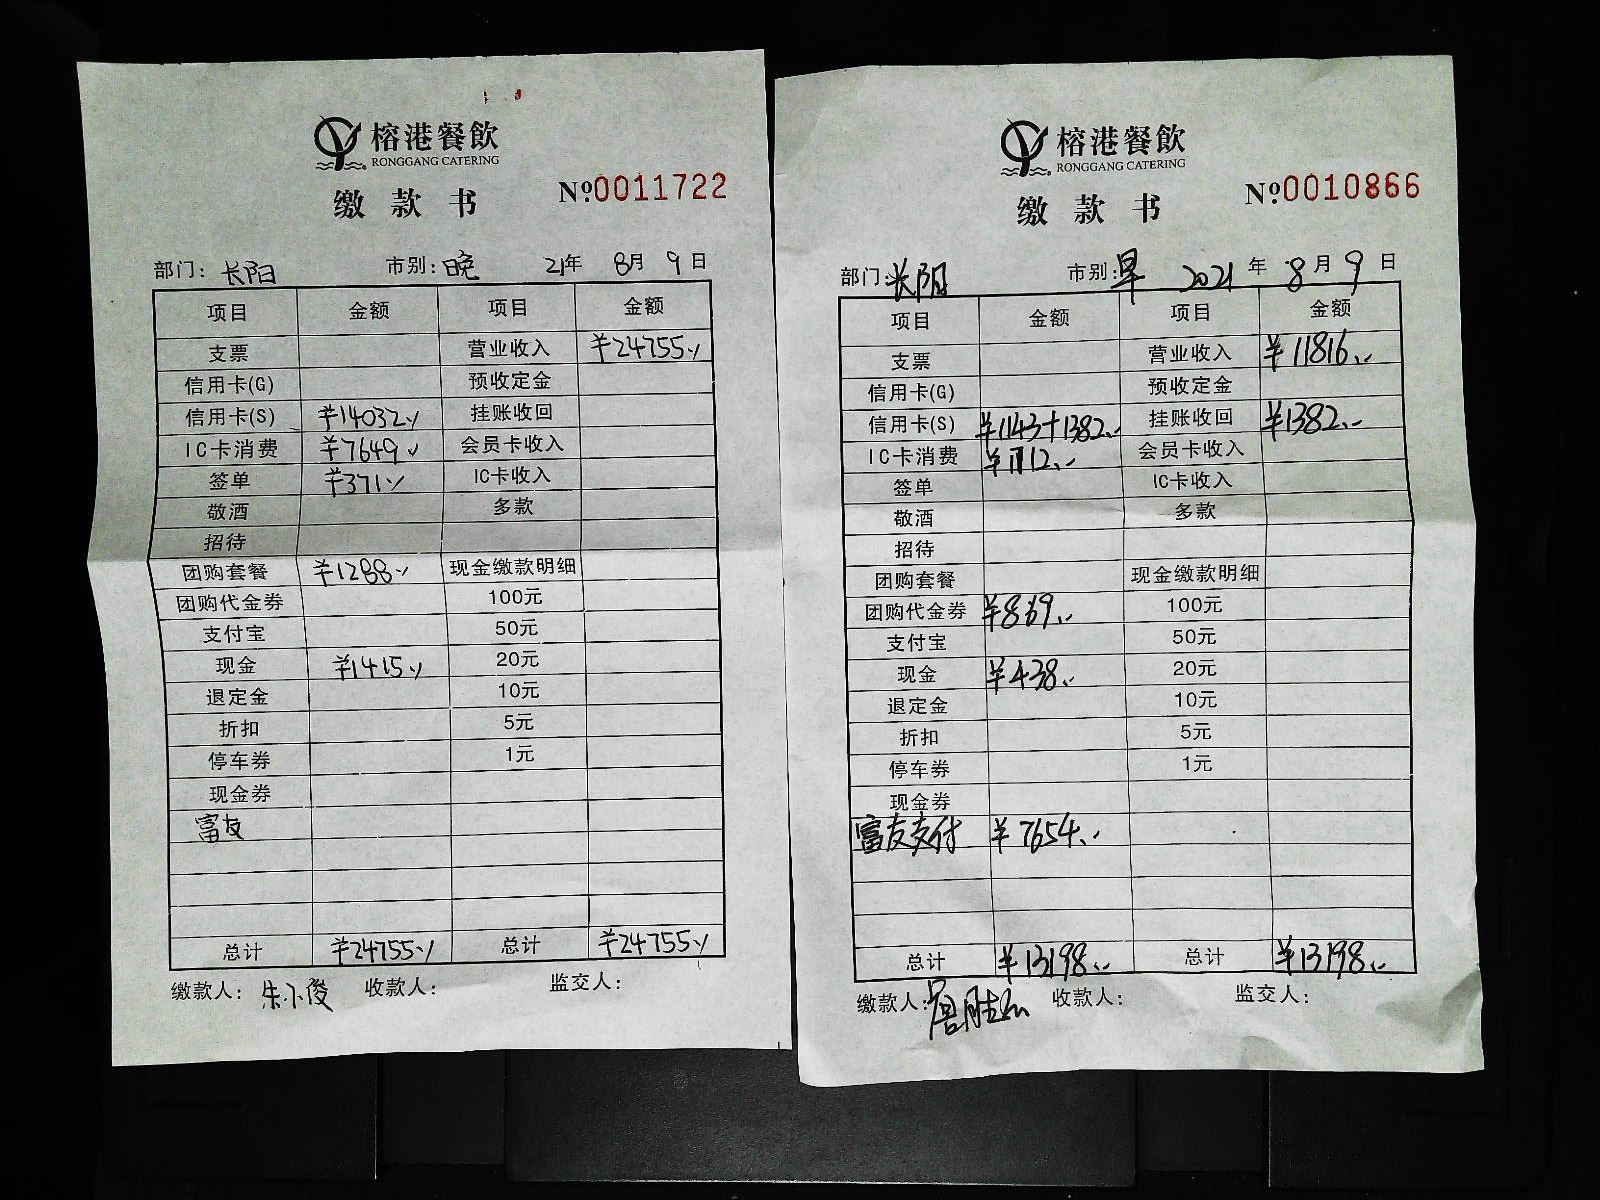 榕港餐飲
RONGGANG CATERING
缴款书
Nº0011722
部门：长阳 市别：晚 21年 8月 9日
项目 金额 项目 金额
支票 营业收入 ¥24755
信用卡(G) 预收定金
信用卡(S) ¥14032 挂账收回
IC卡消费 ¥7649 会员卡收入
签单 ¥371 IC卡收入
敬酒 多款
招待
团购套餐 ¥1288 现金缴款明细
团购代金券 100元
支付宝 50元
现金 ¥1415 20元
退定金 10元
折扣 5元
停车券 1元
现金券
富友
总计 ¥24755 总计 ¥24755
缴款人：朱小俊 收款人： 监交人：
榕港餐飲
RONGGANG CATERING
缴款书
Nº0010866
部门：长阳 市别：早 2021年 8月9日
项目 金额 项目 金额
支票 营业收入 ¥11816
信用卡(G) 预收定金
信用卡(S) ¥1143+1382 挂账收回 ¥1382
IC卡消费 ¥1712 会员卡收入
签单 IC卡收入
敬酒 多款
招待
团购套餐 现金缴款明细
团购代金券 ¥869 100元
支付宝 50元
现金 ¥438 20元
退定金 10元
折扣 5元
停车券 1元
现金券
富友支付 ¥7654
总计 ¥13198 总计 ¥13198
缴款人： 收款人： 监交人：